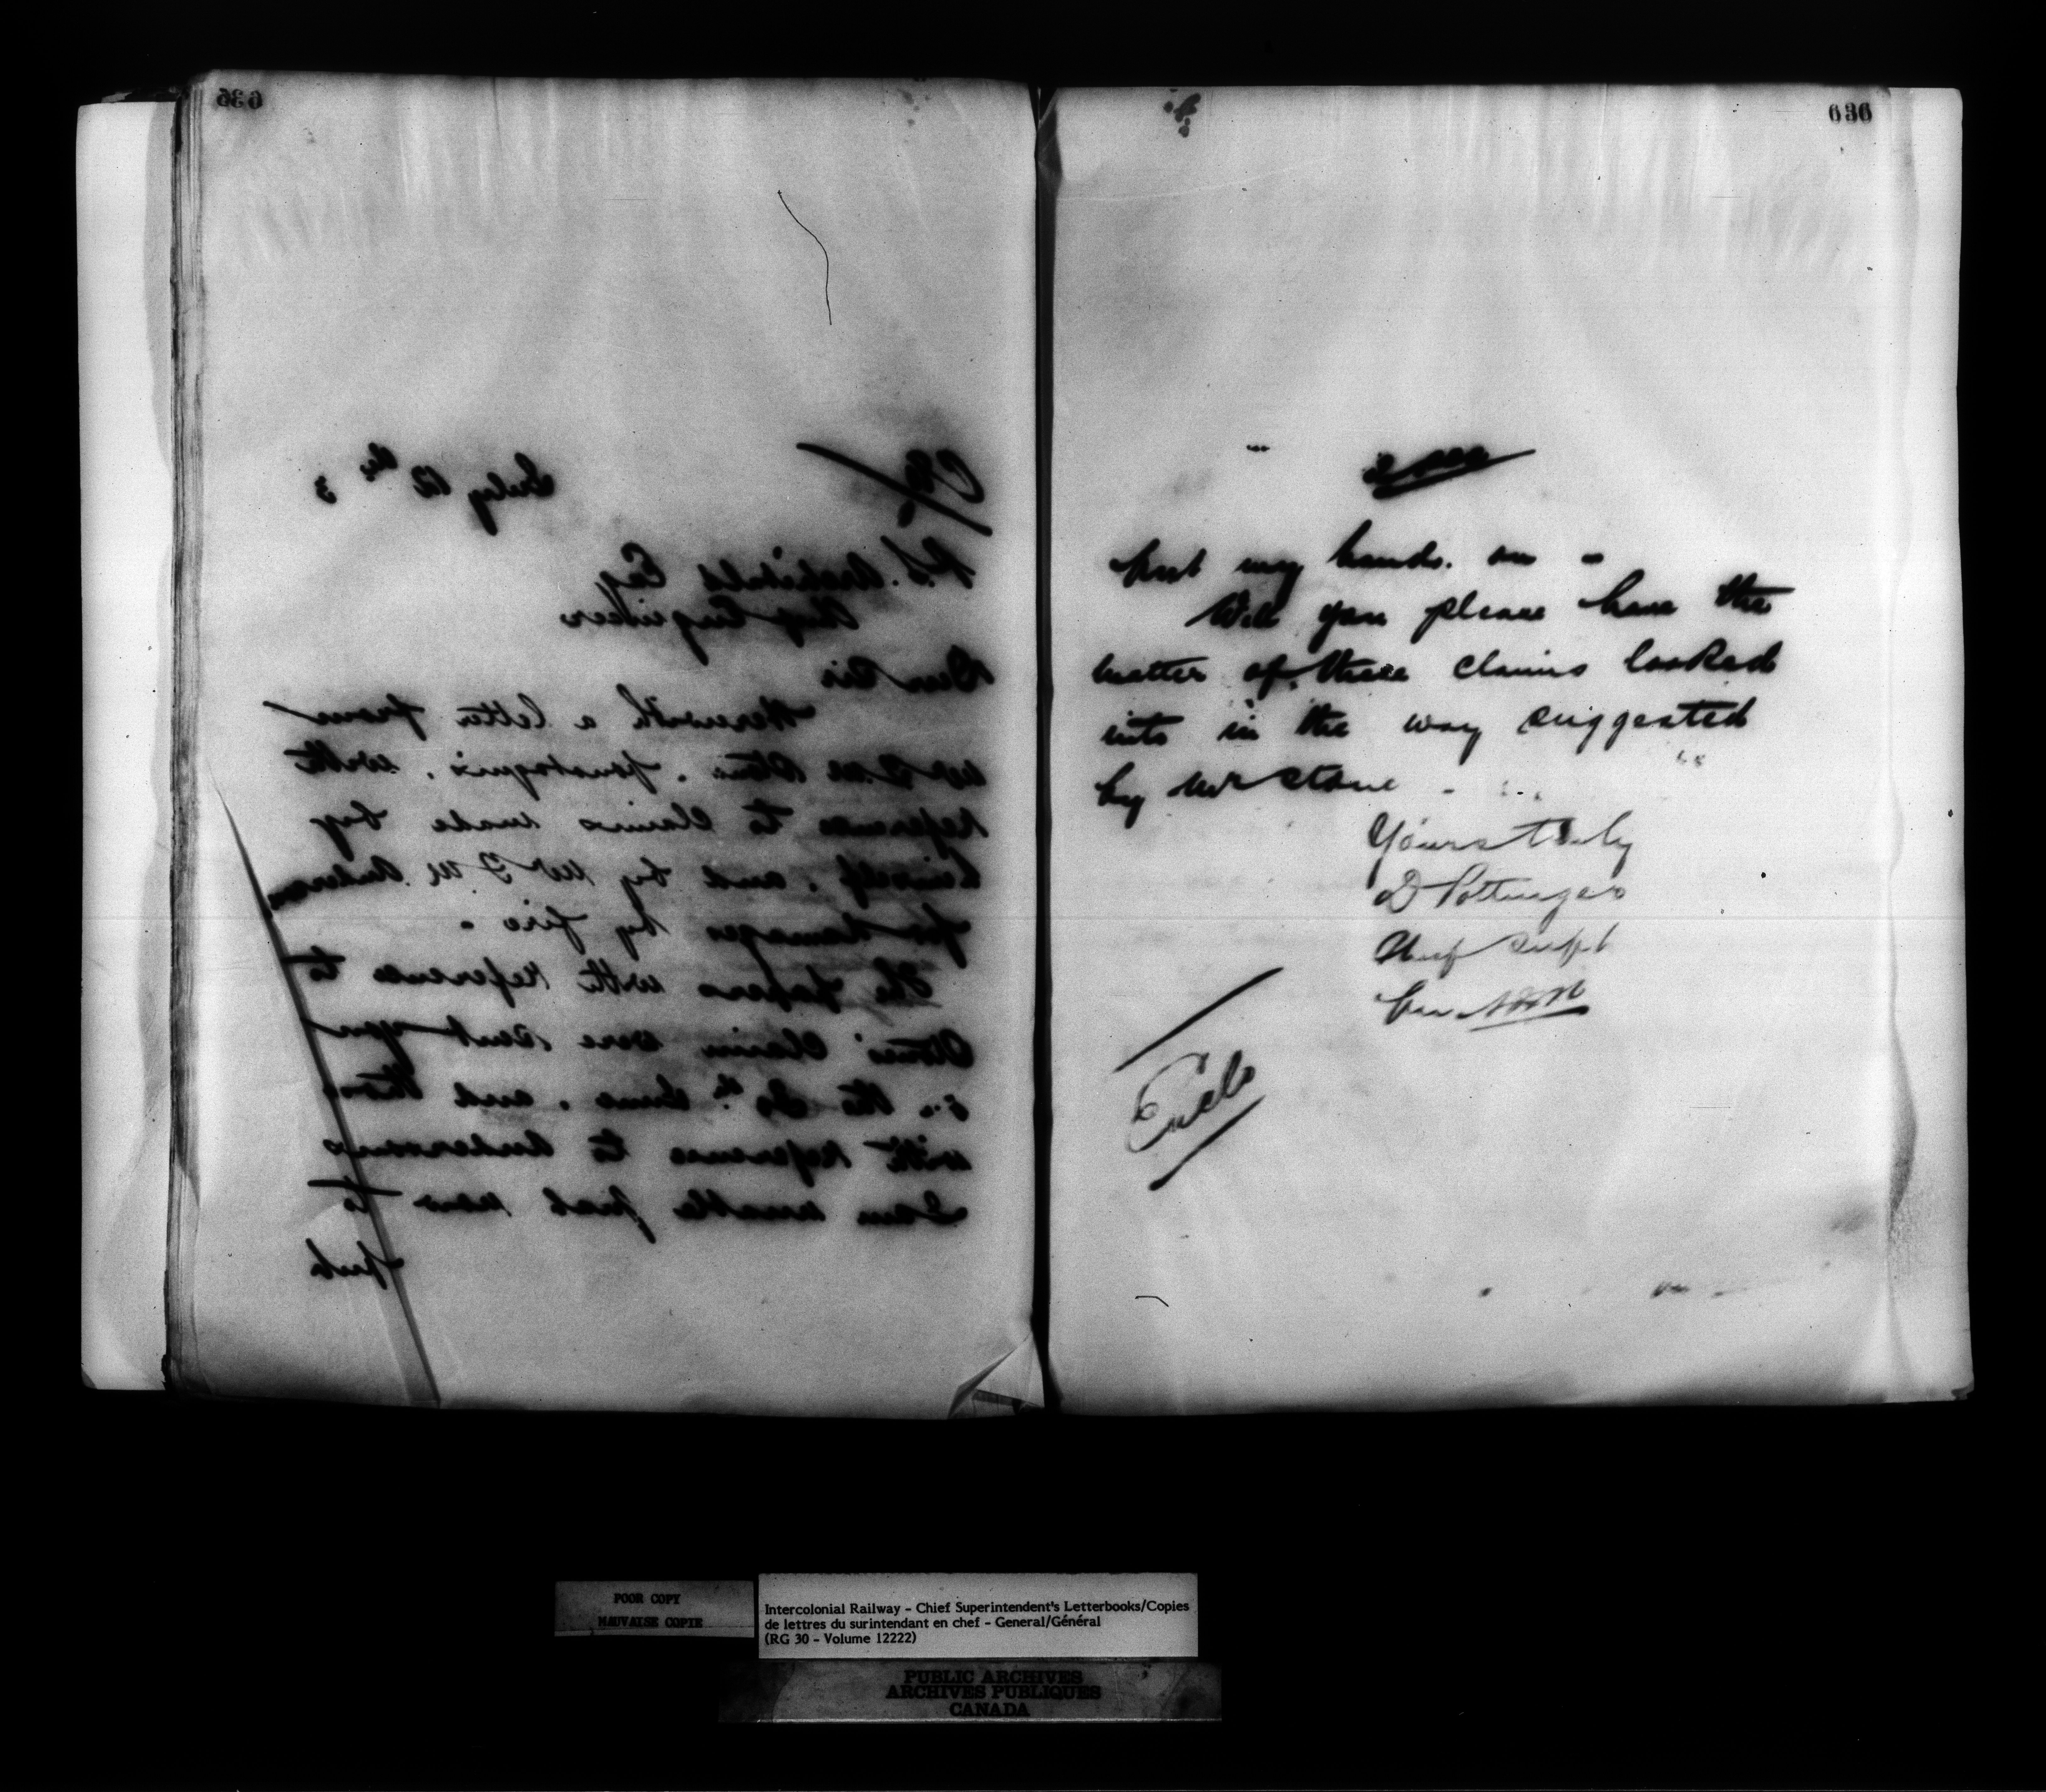 635
July 12th 3
P.S. Archibald Esq
Chief Engineer
Dear Sir
Herewith a letter from
Mr Stone, with
reference to Claims made by
himself, and by Mr Anderson
for damages by fire.
The papers with reference to
Stones' Claim were sent you
the June, and those
with reference to Andersons
I am unable just now to
put
636
put my hands on -
Will you please have the
matter of these claims looked
into in the way suggested
by Mr Stone
Yours truly
D Pottinger
Chief Supt
Enclo
POOR COPY
MAUVAISE COPIE
Intercolonial Railway – Chief Superintendent's Letterbooks/Copies
de lettres du surintendant en chef – General/Général
(RG 30 – Volume 12222)
PUBLIC ARCHIVES
ARCHIVES PUBLIQUES
CANADA